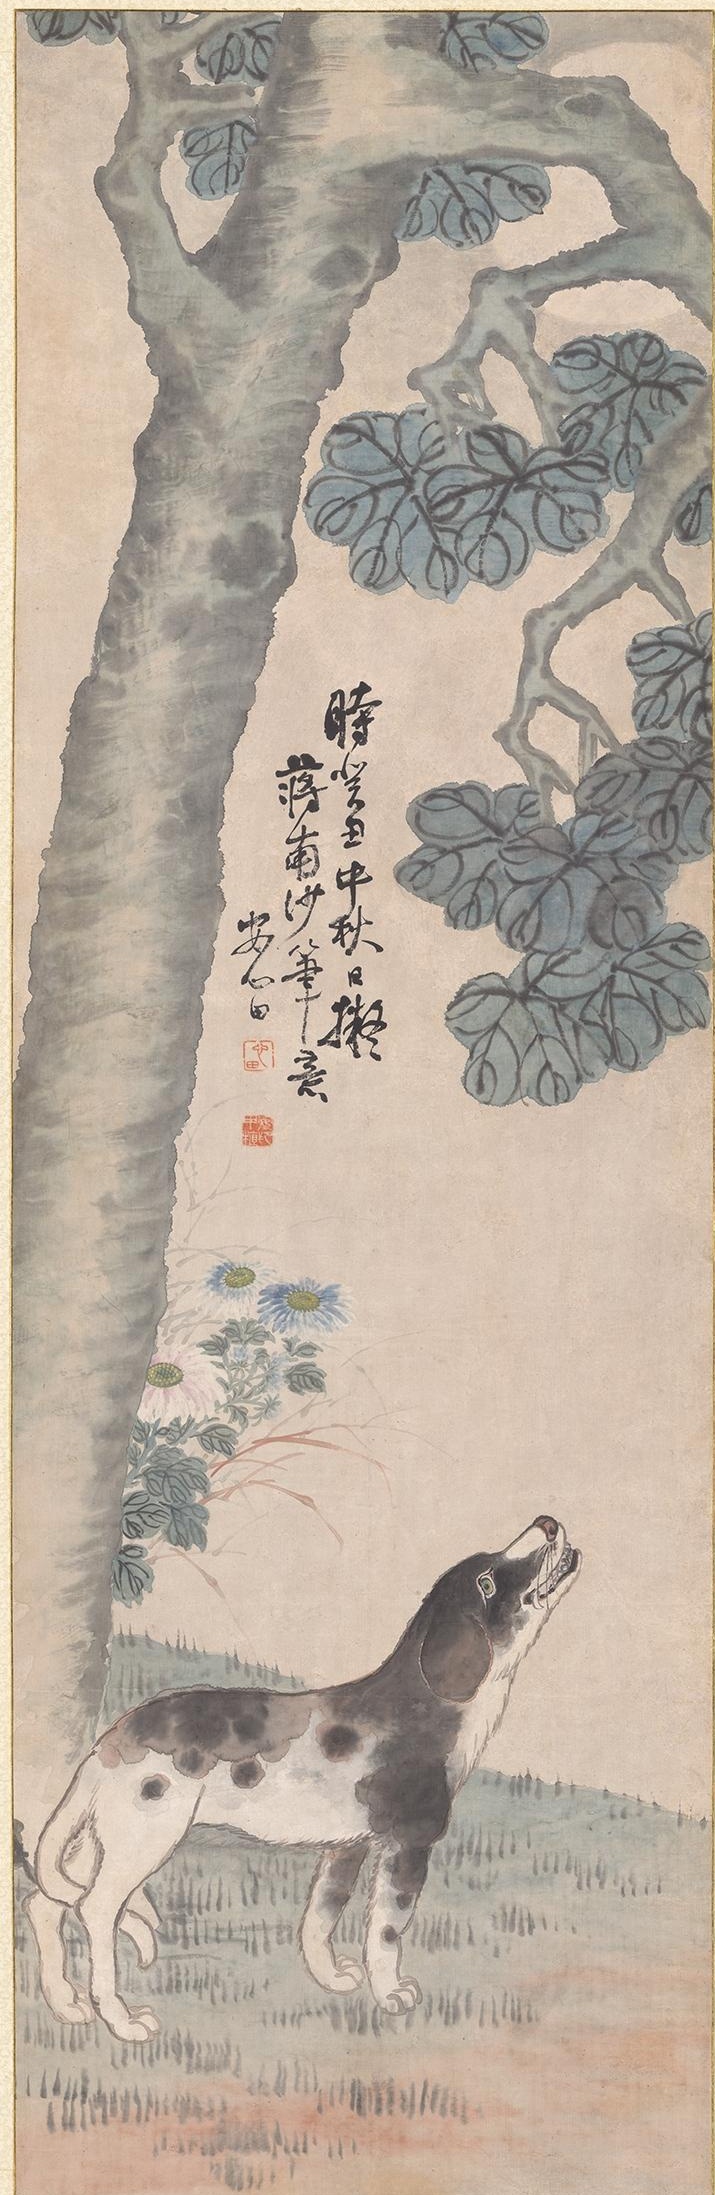 時癸丑中秋日擬
蔣南沙筆意
安心田
心田